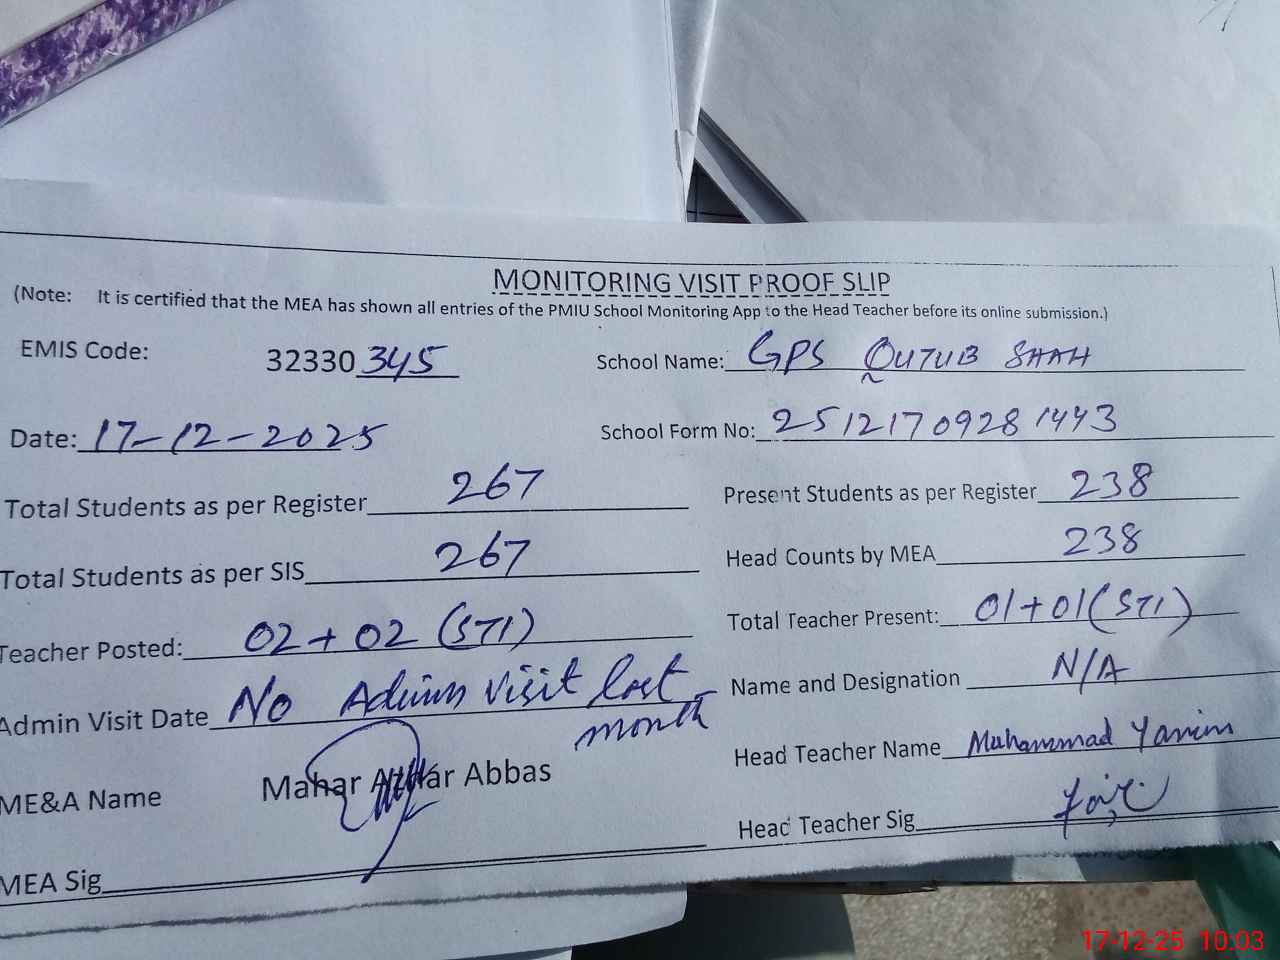 MONITORING VISIT PROOF SLIP
(Note: It is certified that the MEA has shown all entries of the PMIU School Monitoring App to the Head Teacher before its online submission.)
EMIS Code: 32330 345 School Name: GPS QUTUB SHAH
Date: 17-12-2025 School Form No: 2512170928 1443
Total Students as per Register 267 Present Students as per Register 238
Total Students as per SIS 267 Head Counts by MEA 238
Teacher Posted: 02 + 02 (STI) Total Teacher Present: 01+01 (STI)
Admin Visit Date No Admin visit last month Name and Designation N/A
ME&A Name Mahar Abbas Head Teacher Name Muhammad
MEA Sig Head Teacher Sig
17-12-25 10:03